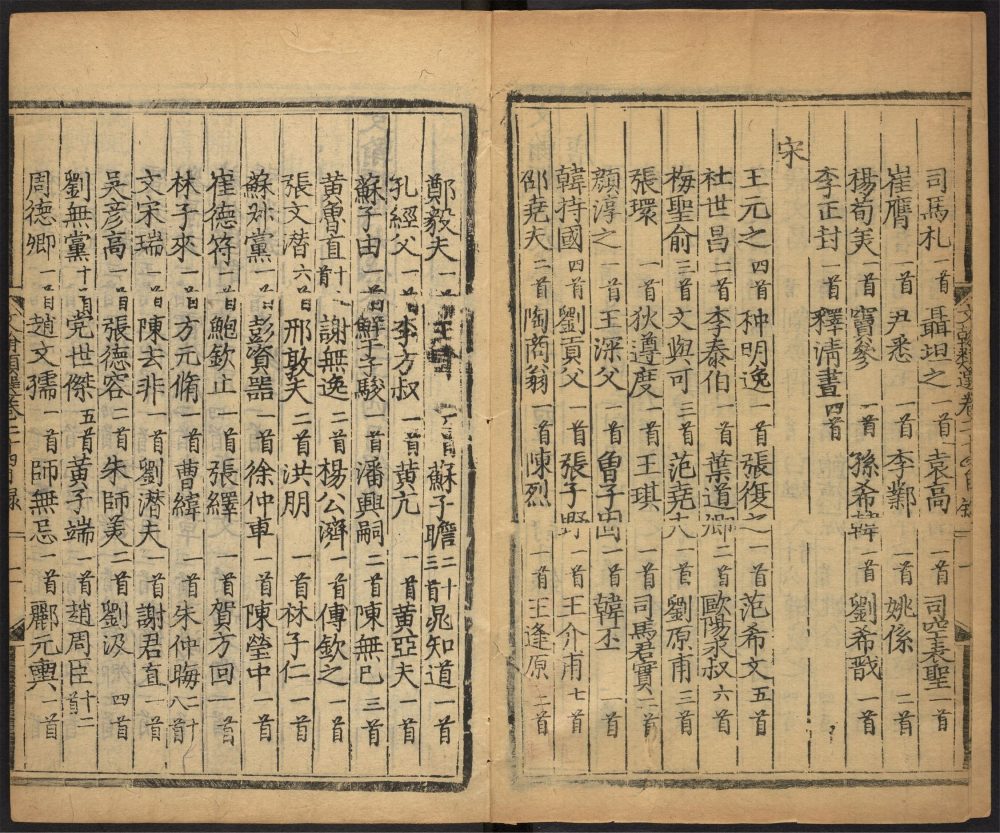 司馬札一首 聶坦之一首 袁高一首 司空表聖一首
崔膺一首 尹悉一首 李鄴一首 姚係二首
楊苟美一首 竇參一首 孫希韓一首 劉希戩一首
李正封一首 釋清晝四首
宋
王元之四首 种明逸一首 張復之一首 范希文五首
杜世昌二首 李泰伯一首 葉道卿二首 歐陽永叔六首
梅聖俞三首 文與可三首 范堯夫一首 劉原甫三首
張環一首 狄遵度一首 王琪一首 司馬君實一首
顏淳之一首 王深父一首 曾子固一首 韓丕一首
韓持國四首 劉貢父一首 張子野一首 王介甫七首
邵堯夫二首 陶商翁一首 陳烈一首 王逢原二首
鄭毅夫一首 一首 蘇子瞻二十三首 晁知道一首
孔經父一首 李方叔一首 黃亢一首 黃亞夫一首
蘇子由一首 鮮于子駿一首 潘興嗣二首 陳無已三首
黃魯直十首 謝無逸二首 楊公濟一首 傅欽之一首
張文潛六首 邢敦夫二首 洪朋一首 林子仁一首
蘇叔黨一首 彭資器一首 徐仲車一首 陳瑩中一首
崔德符一首 鮑欽止一首 張繹一首 賀方回一首
林子來一首 方元脩一首 曹緯一首 朱仲晦八十二首
文宋瑞一首 陳去非一首 劉潛夫一首 謝君直一首
吳彥高一首 張德容二首 朱師美二首 劉汲四首
劉無黨十首 党世傑五首 黃子端一首 趙周臣十二首
周德卿一首 趙文孺一首 師無忌一首 酈元輿一首